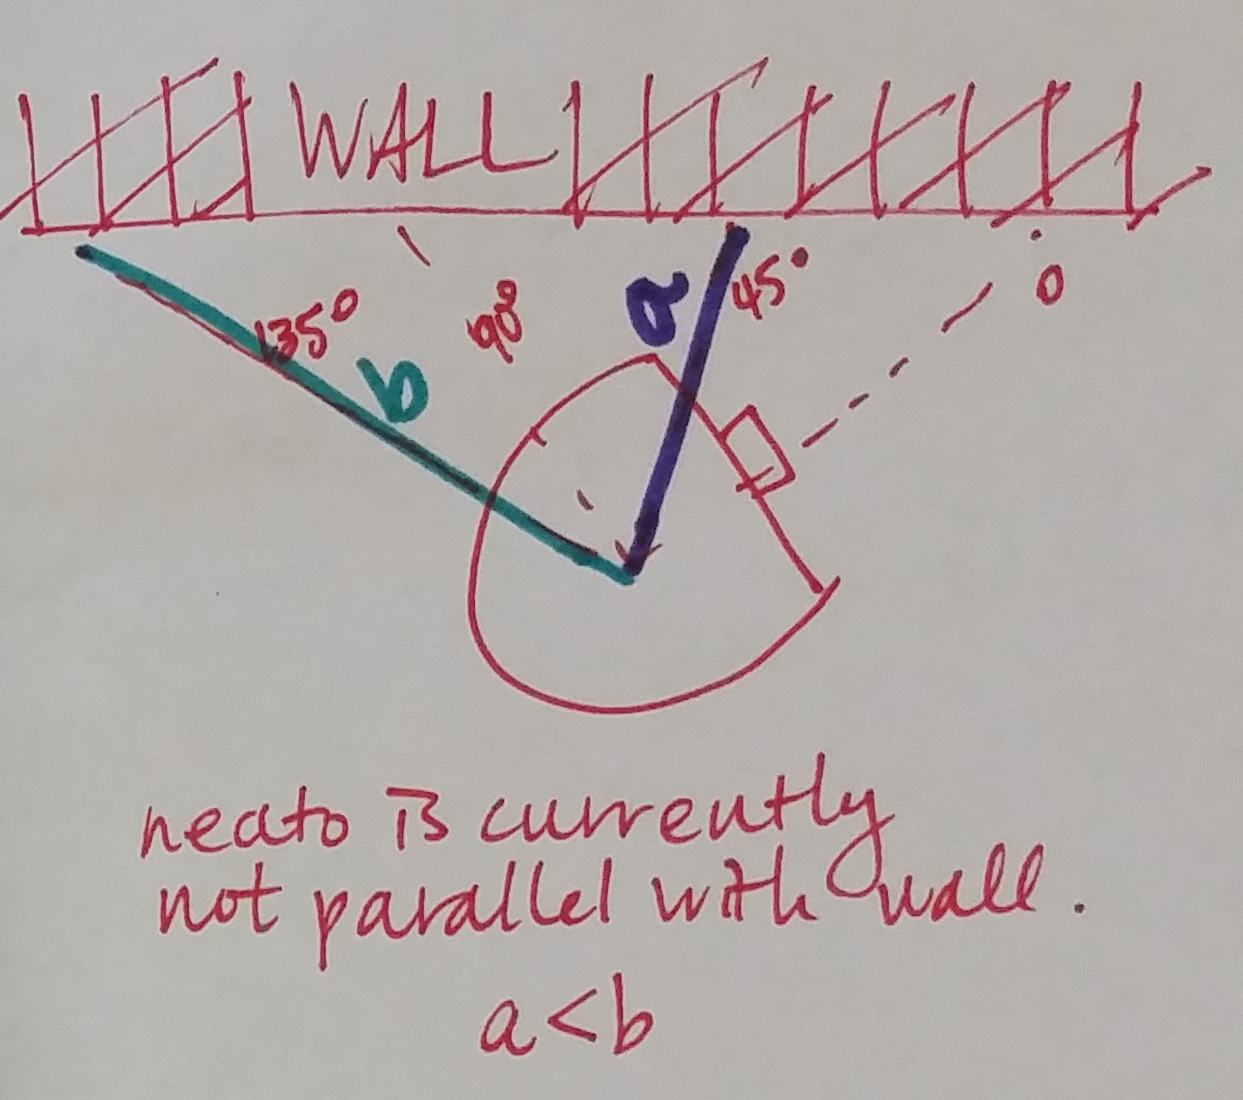 WALL
135°
90°
45°
0
b
a
neato is currently
not parallel with wall.
a<b